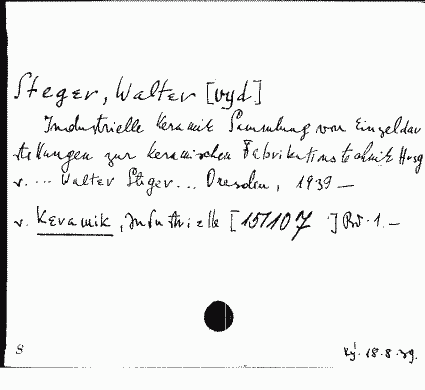 Steger, Walter [vyd]
Industrielle Keramik Sammlung von Einzeldar
stellungen zur keramischen Fabrikationstechnik Hrsg
v. ... Walter Steger... Dresden, 1939 —
v. Keramik, Industrielle [15/107 ] Bd. 1. —
S
Ký. 18.8.39.